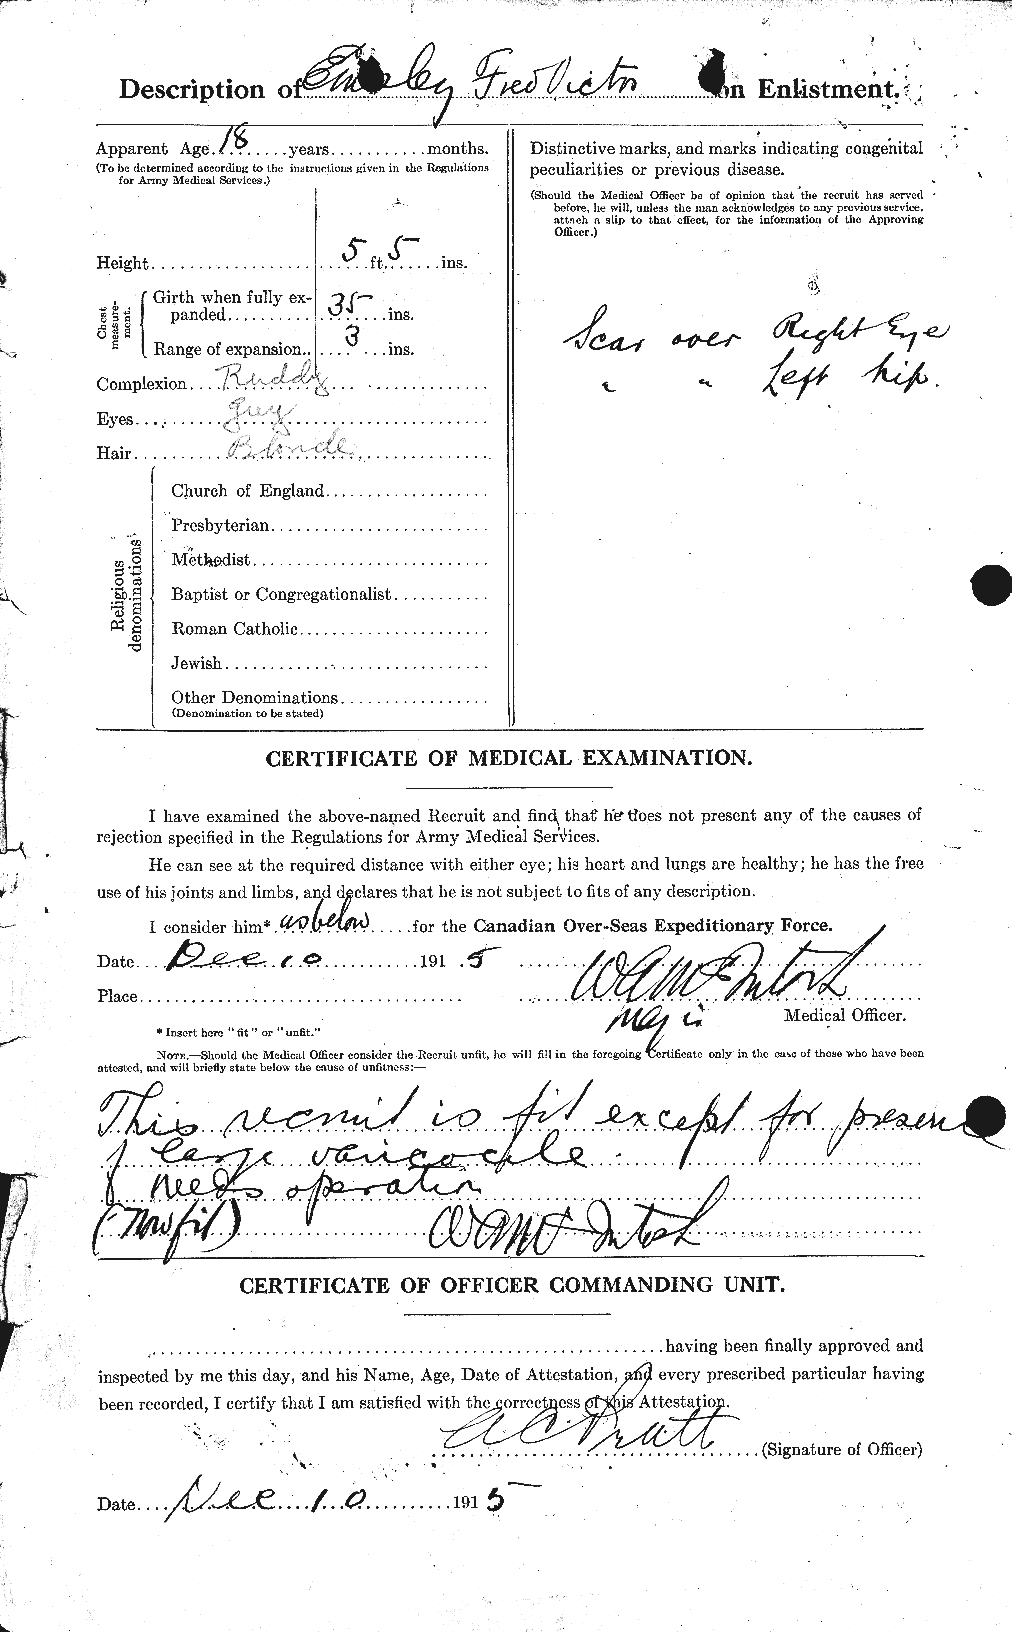 Description of Fred Victor on Enlistment.
Apparent Age. 18 ......years...........months.
(To be determined according to the instructions given in the Regulations
for Army Medical Services.)
Height.................... 5 ft. 5 ......ins.
Chest measure-ment.
Girth when fully ex-
panded.......... 35 ...ins.
Range of expansion.. 3 ...ins.
Complexion... Ruddy
Eyes.... Grey
Hair.......... Blonde
Religious denominations
Church of England....................
Presbyterian..........................
Methodist............................
Baptist or Congregationalist...........
Roman Catholic.......................
Jewish................................
Other Denominations..................
(Denomination to be stated)
Distinctive marks, and marks indicating congenital
peculiarities or previous disease.
(Should the Medical Officer be of opinion that the recruit has served
before, he will, unless the man acknowledges to any previous service,
attach a slip to that effect, for the information of the Approving
Officer.)
Scar over Right Eye
" " Left hip.
CERTIFICATE OF MEDICAL EXAMINATION.
I have examined the above-named Recruit and find that he does not present any of the causes of
rejection specified in the Regulations for Army Medical Services.
He can see at the required distance with either eye; his heart and lungs are healthy; he has the free
use of his joints and limbs, and declares that he is not subject to fits of any description.
I consider him* as below .....for the Canadian Over-Seas Expeditionary Force.
Date... Dec 10 ...........191 5
W A McIntosh
Place........................................
Major
Medical Officer.
* Insert here "fit" or "unfit."
NOTE.—Should the Medical Officer consider the Recruit unfit, he will fill in the foregoing Certificate only in the case of those who have been
attested, and will briefly state below the cause of unfitness:—
This recruit is fit except for presence
of large varicocele.
needs operation
(Now fit) W A McIntosh
CERTIFICATE OF OFFICER COMMANDING UNIT.
................................................................having been finally approved and
inspected by me this day, and his Name, Age, Date of Attestation, and every prescribed particular having
been recorded, I certify that I am satisfied with the correctness of this Attestation.
A C Pratt
(Signature of Officer)
Date.... Dec 10 ..........191 5